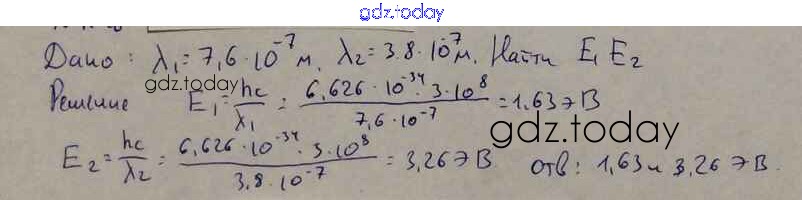 gdz.today
Дано: λ₁=7,6·10⁻⁷м, λ₂=3.8·10⁻⁷м. Найти E₁ E₂
gdz.today
Решение E₁=hc/λ₁=6,626·10⁻³⁴·3·10⁸/7,6·10⁻⁷=1.63эВ
gdz.today
E₂=hc/λ₂=6,626·10⁻³⁴·3·10⁸/3,8·10⁻⁷=3,26эВ отв: 1,63 и 3,26 эВ.